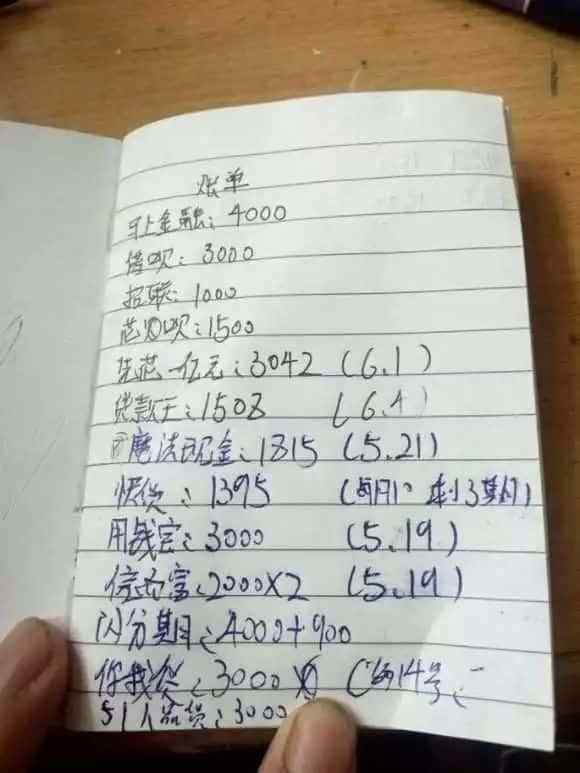 账单
马上金融：4000
借呗：3000
招联：1000
花呗：1500
先花一亿元：3042 (6.1)
贷款王：1508 (6.4)
魔法现金：1815 (5.21)
快贷：1395 (每月1° 剩3期)
用钱宝：3000 (5.19)
信而富：2000×2 (5.19)
闪分期：4000+900
你我贷：3000 (每14号
51人品贷：3000